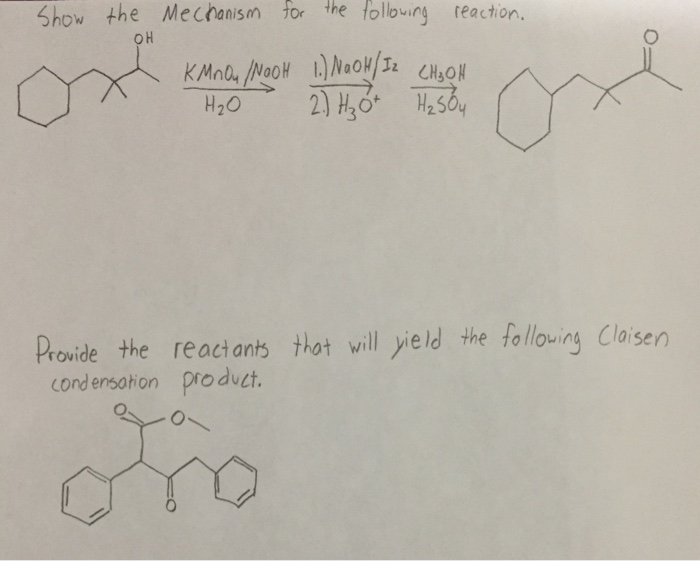 Show the Mechanism for the following reaction.
OH
O
KMnO₄/NaOH 1.) NaOH/I₂ CH₃OH
H₂O 2.) H₃O⁺ H₂SO₄
Provide the reactants that will yield the following Claisen
condensation product.
O O
O